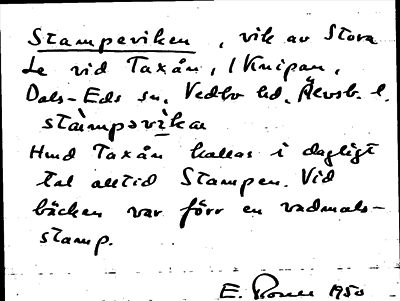 Stampeviken, vik av Stora
Le vid Taxån, i Knipan,
Dals-Eds sn, Vedbo hd, Älvsb. l.
stàmpəvìkən
Hmd Taxån kallas i dagligt
tal alltid Stampen. Vid
bäcken var förr en vadmals-
stamp.
E. 1950